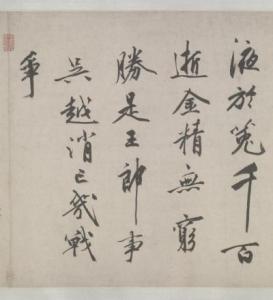 液於菟千百
逝金精無窮
勝是王郎事
吳越消亡幾戰
爭